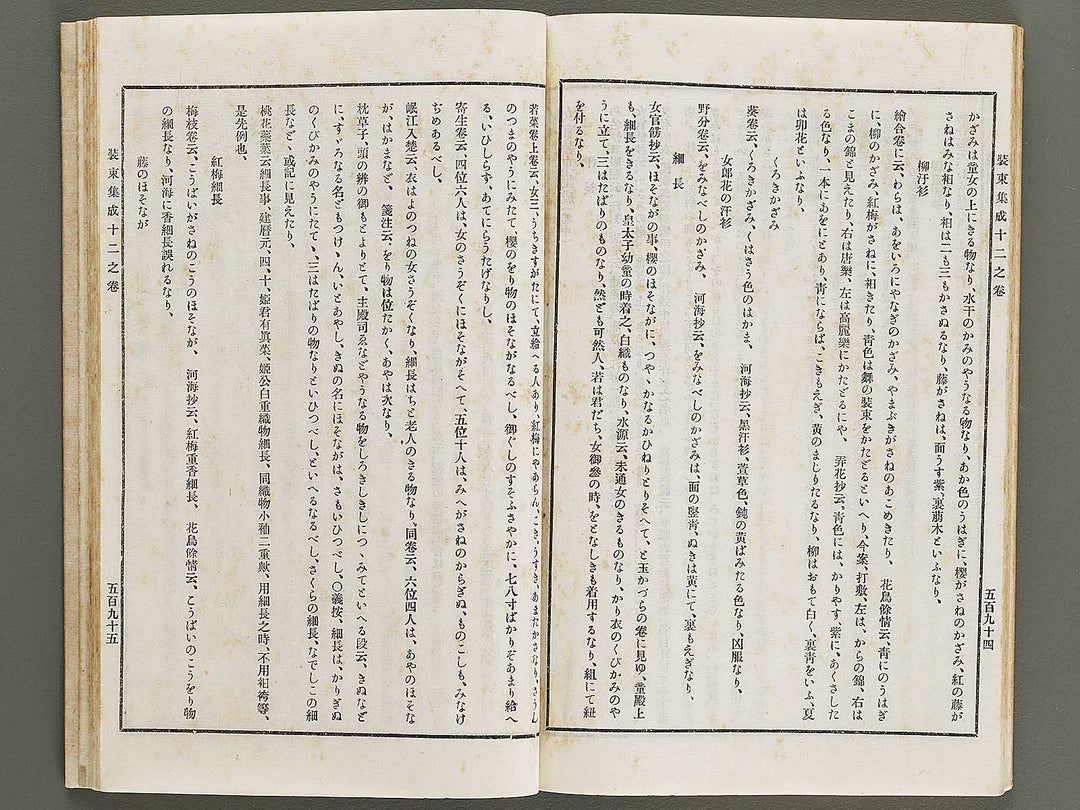 裝束集成十二之卷
五百九十四
かざみは童女の上にきる物なり、水干のかみのやうなる物なり、あか色のうはぎに、櫻がさねのかざみ、紅の藤が
さねはみな袙なり、袙は二も三もかさぬるなり、藤がさねは、面うす紫、裏萠木といふなり、
柳汗衫
繪合卷に云、わらは、あをいろにやなぎのかざみ、やまぶきがさねのあこめきたり、 花鳥餘情云、靑にのうはぎ
に、柳のかざみ、紅梅がさねに、袙きたり、靑色は舞の裝束をかたどるといへり、今案、打敷、左は、からの錦、右は
こまの錦と見えたり、右は唐樂、左は高麗樂にかたどるにや、 弄花抄云、靑色には、かりやす、紫に、あくさした
る色なり、一本にあをにとあり、靑にならば、こきもえぎ、黃のまじりたるなり、柳はおもて白く、裏靑をいふ、夏
は卯花といふなり、
くろきかざみ
葵卷云、くろきかざみ、くはさう色のはかま、 河海抄云、黑汗衫、萱草色、鈍の黃ばみたる色なり、凶服なり、
女郎花の汗衫
野分卷云、をみなべしのかざみ、 河海抄云、をみなべしのかざみは、面の竪靑、ぬきは黃にて、裏もえぎなり、
細長
女官餝抄云、ほそながの事、櫻のほそながに、つやゝかなるかひねりとりそへて、と玉かづらの卷に見ゆ、童殿上
も、細長をきるなり、皇太子幼童の時着之、白織ものなり、水源云、未通女のきるものなり、かり衣のくびかみのや
うに立て、三はたばりのものなり、然ども可然人、若は君だち、女御參の時、をとなしきも着用するなり、組にて紐
を付るなり、
若菜卷上卷云、女三、うちきすがたにて、立給へる人あり、紅梅にやあらん、こき、うすき、あまたかさなり、さうし
のつまのやうにみたて、櫻のをり物のほそながなるべし、御ぐしのすそふさやかに、七八寸ばかりぞあまり給へ
る、いひしらず、あてにらうたげなりし、
寄生卷云、四位六人は、女のさうぞくにほそながそへて、五位十人は、みへがさねのからぎぬ、ものこしも、みなけ
ぢめあるべし、
岷江入楚云、衣はよのつねの女さうぞくなり、細長はちと老人のきる物なり、同卷云、六位四人は、あやのほそな
が、はかまなど、 箋注云、をり物は位たかく、あやは次なり、
枕草子、頭の辨の御もとよりとて、主殿司ゑなどやうなる物をしろきしきしにつゝみてといへる段云、きぬなど
に、すゞろなる名どもつけゝん、いとあやし、きぬの名にほそながは、さもいひつべし、〇義按、細長は、かりぎぬ
のくびかみのやうにたてゝ、三はたばりの物なりといひつべし、といへるなるべし、さくらの細長、なでしこの細
長などゝ或記に見えたり、
桃花蘂葉云細長事、建曆元、四、十、姬君有眞菜、姬公白重織物細長、同織物小袖二重歟、用細長之時、不用袙袴等、
是先例也、
紅梅細長
梅枝卷云、こうばいがさねのこうのほそなが、 河海抄云、紅梅重香細長、 花鳥餘情云、こうばいのこうをり物
の細長なり、河海に香細長誤れるなり、
藤のほそなが
裝束集成十二之卷
五百九十五